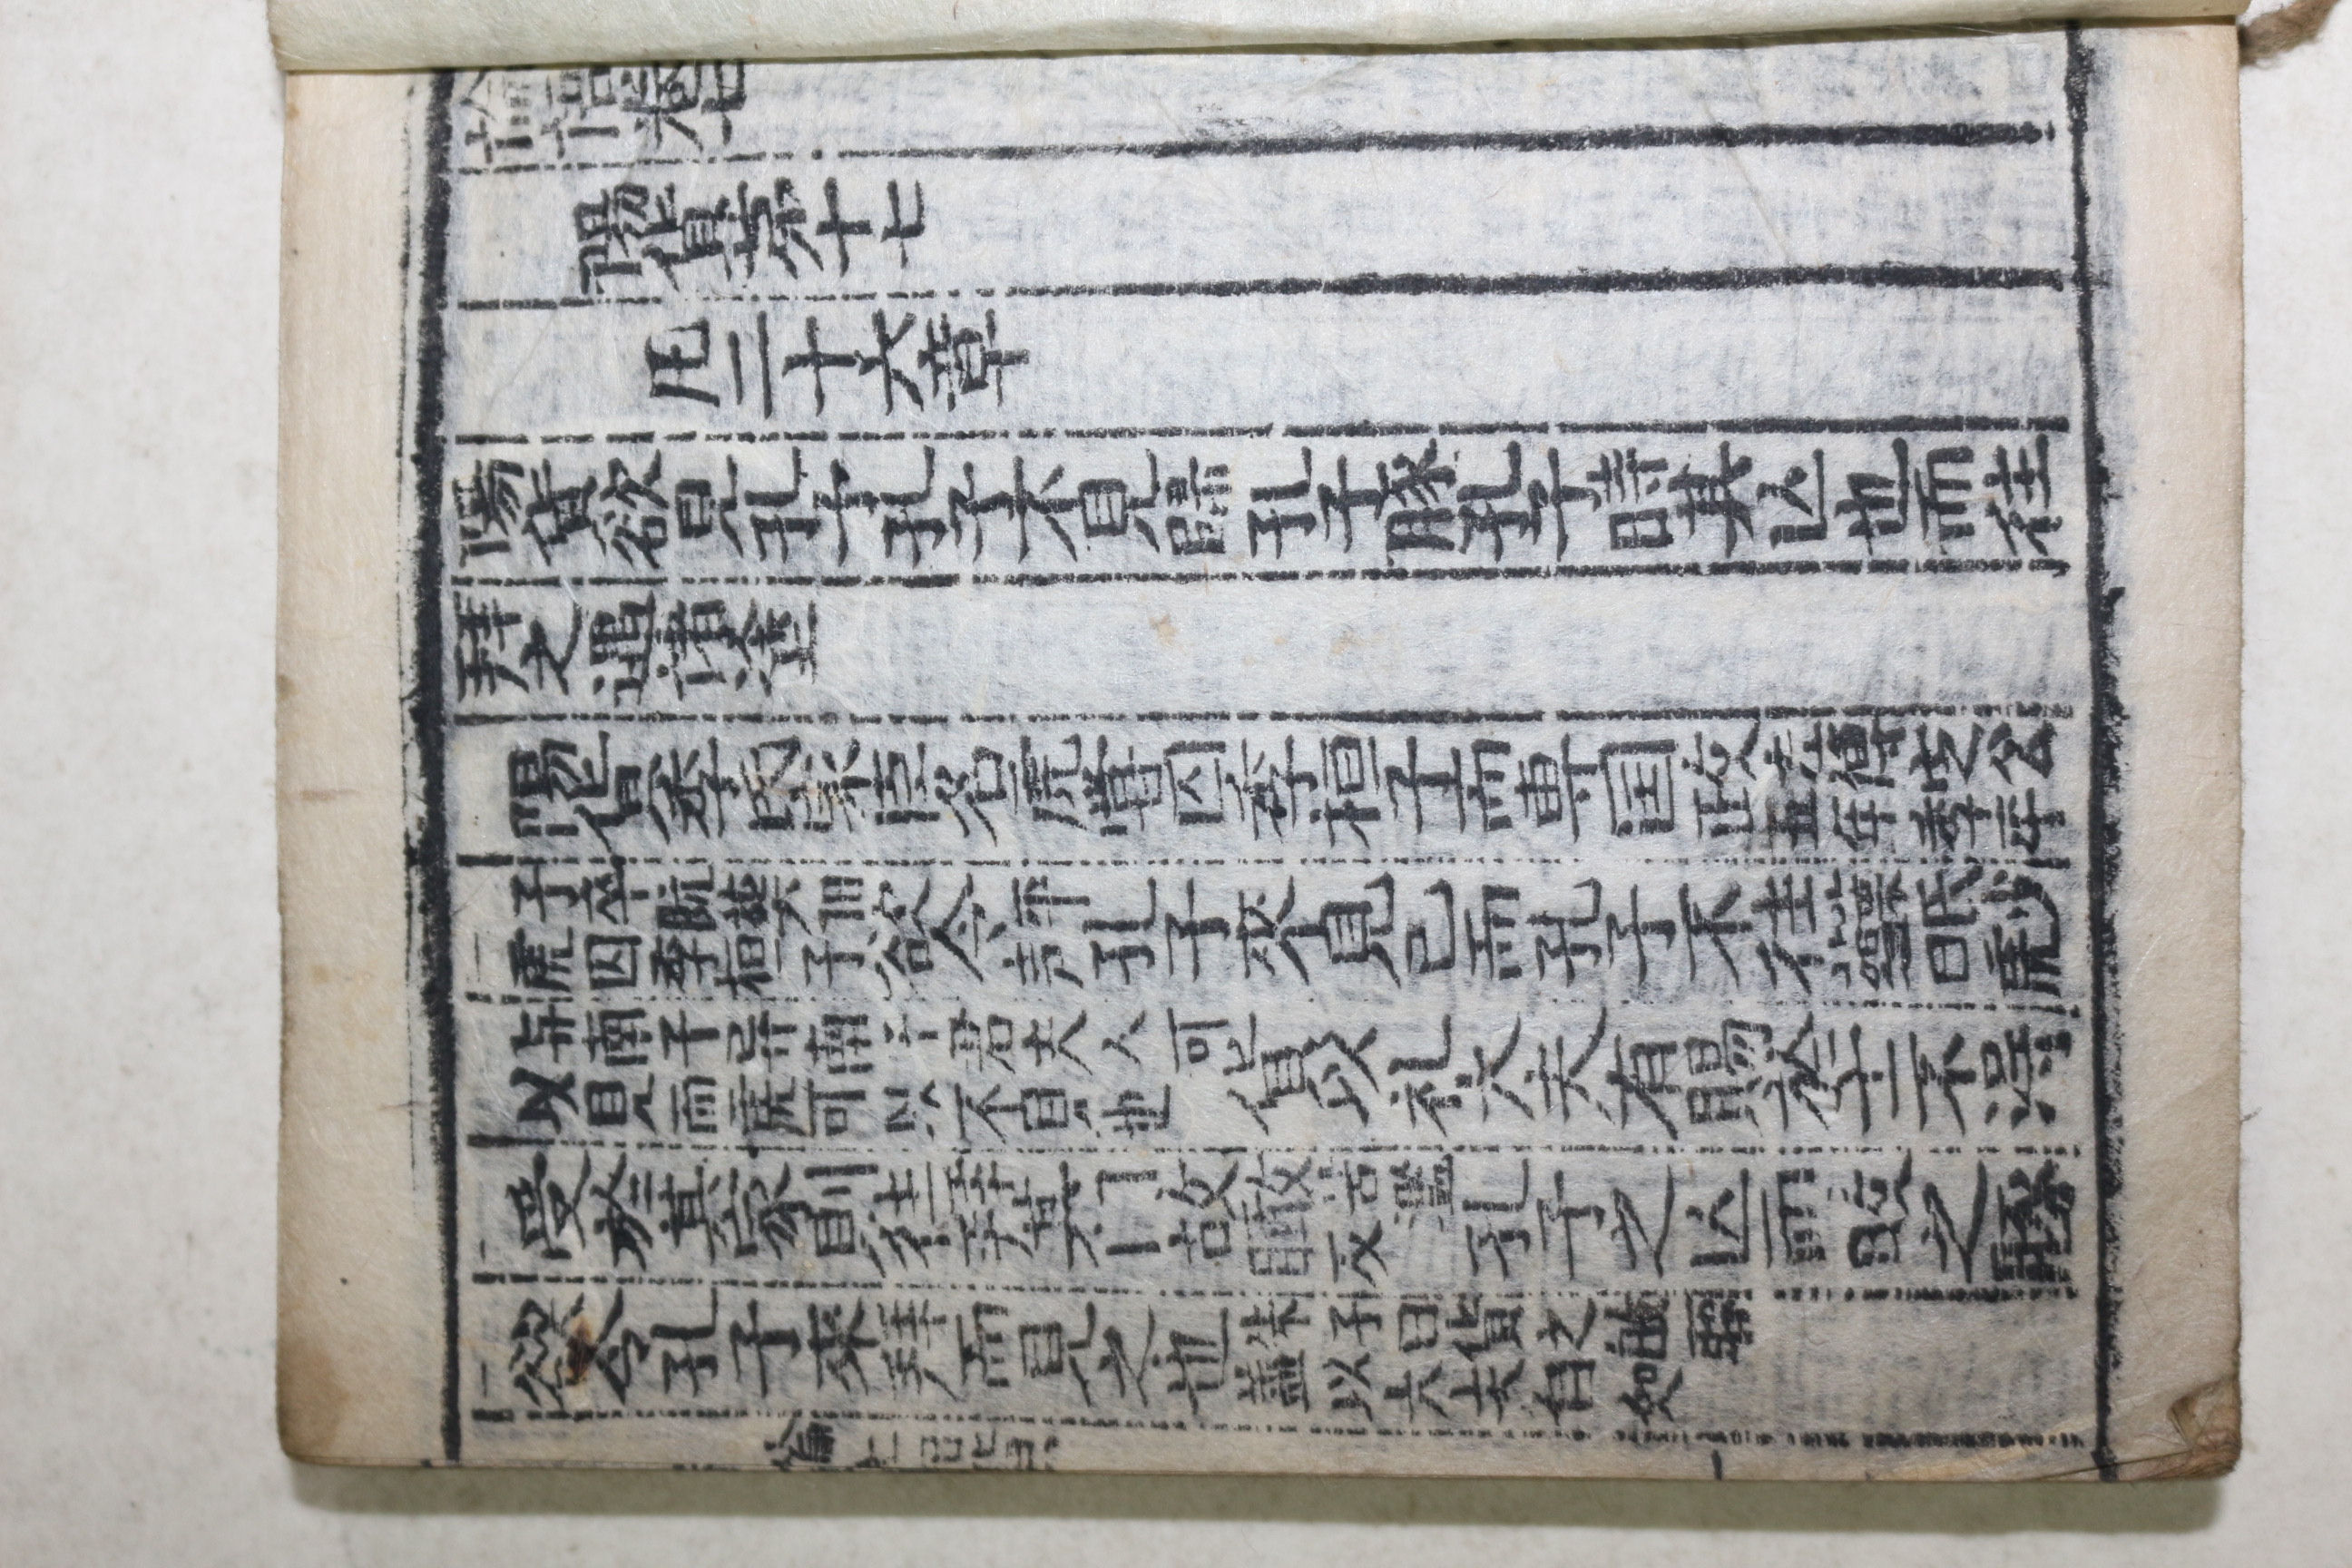 論語卷七
陽貨第十七
凡二十六章
陽貨欲見孔子孔子不見歸孔子豚孔子時其亡也而往
拜之遇諸塗
陽貨季氏家臣名虎嘗囚季桓子而專国政左傳定公五年季平
子卒既葬虎囚季桓子欲令平声孔子來見已而孔子不往葉氏少蘊曰虎
与南子異南子君夫人可以見而虎可以不見也貨以礼大夫有賜於士不得
受於其家則往拜其門故瞰古濫反孔子之亡而歸之豚
欲令孔子來拜而見之也朱子曰貨之盖以大夫自